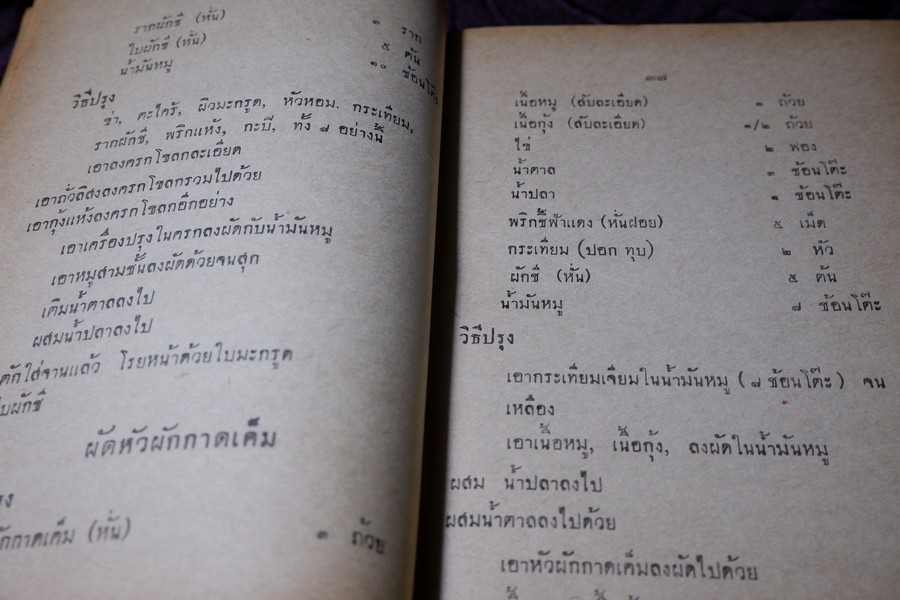 รากผักชี (หั่น) ๓ ราก
ใบผักชี (หั่น) ๕ ต้น
น้ำมันหมู ๑๐ ช้อนโต๊ะ
วิธีปรุง
ข่า, ตะไคร้, ผิวมะกรูด, หัวหอม. กระเทียม,
รากผักชี, พริกแห้ง, กะปิ, ทั้ง ๘ อย่างนี้
เอาลงครกโขลกละเอียด
เอาถั่วลิสงลงครกโขลกรวมไปด้วย
เอากุ้งแห้งลงครกโขลกอีกอย่าง
เอาเครื่องปรุงในครกลงผัดกับน้ำมันหมู
เอาหมูสามชั้นลงผัดด้วยจนสุก
เติมน้ำตาลลงไป
ผสมน้ำปลาลงไป
ตักใส่จานแล้ว โรยหน้าด้วยใบมะกรูด
ใบผักชี
ผัดหัวผักกาดเค็ม
รุง
ผักกาดเค็ม (หั่น) ๓ ถ้วย
๓๗
เนื้อหมู (สับละเอียด) ๑ ถ้วย
เนื้อกุ้ง (สับละเอียด) ๑/๒ ถ้วย
ไข่ ๒ ฟอง
น้ำตาล ๓ ช้อนโต๊ะ
น้ำปลา ๑ ช้อนโต๊ะ
พริกชี้ฟ้าแดง (หั่นฝอย) ๕ เม็ด
กระเทียม (ปอก ทุบ) ๒ หัว
ผักชี (หั่น) ๕ ต้น
น้ำมันหมู ๘ ช้อนโต๊ะ
วิธีปรุง
เอากระเทียมเจียวในน้ำมันหมู (๘ ช้อนโต๊ะ) จน
เหลือง
เอาเนื้อหมู, เนื้อกุ้ง, ลงผัดในน้ำมันหมู
ผสม น้ำปลาลงไป
ผสมน้ำตาลลงไปด้วย
เอาหัวผักกาดเค็มลงผัดไปด้วย